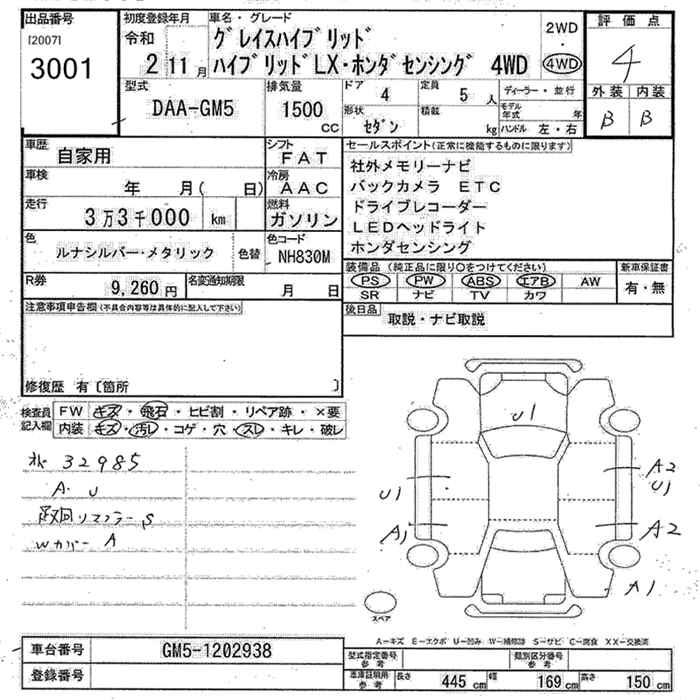 出品番号
[2007]
3001
初度登録年月
令和
2 11月
車名・グレード
グレイスハイブリッド
ハイブリッドLX・ホンダセンシング 4WD
2WD
・
4WD
評価点
4
外装 内装
B B
型式
DAA-GM5
排気量
1500
CC
ドア 4
定員 5 人
形状 セダン
積載 kg
ディーラー・並行
モデル年式 年
ハンドル 左・右
車歴
自家用
シフト
FAT
車検
年 月( 日)
冷房
AAC
走行
3万3千000 km
燃料
ガソリン
色
ルナシルバー・メタリック
色替
色コード
NH830M
R券
9,260円
名変通知期限
月 日
セールスポイント(正常に機能するものに限ります)
社外メモリーナビ
バックカメラ ETC
ドライブレコーダー
LEDヘッドライト
ホンダセンシング
装備品(純正品に限り○をつけてください)
PS PW ABS エアB AW
SR ナビ TV カワ
新車保証書
有・無
後日品
取説・ナビ取説
注意事項申告欄(不具合内容等は具体的に記入して下さい)
修復歴 有〔箇所 〕
検査員記入欄
FW キズ・飛石・ヒビ割・リペア跡・×要
内装 キズ・汚レ・コゲ・穴・スレ・キレ・破レ
32985
A・U
リマフラー S
Wカバー A
U1
U1
A1
A2
U1
A2
A1
スペア
A-キズ E-エクボ U-凹み W-補修跡 S-サビ C-腐食 XX-交換済
車台番号
GM5-1202938
登録番号
型式指定番号
参考
類別区分番号
参考
車庫証明用
参考
長さ 445 cm 幅 169 cm 高さ 150 cm